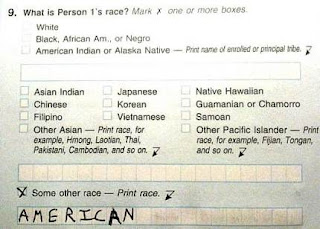 9. What is Person 1's race? Mark X one or more boxes.
White
Black, African Am., or Negro
American Indian or Alaska Native — Print name of enrolled or principal tribe.
Asian Indian Japanese Native Hawaiian
Chinese Korean Guamanian or Chamorro
Filipino Vietnamese Samoan
Other Asian — Print race, for example, Hmong, Laotian, Thai, Pakistani, Cambodian, and so on.
Other Pacific Islander — Print race, for example, Fijian, Tongan, and so on.
X Some other race — Print race.
AMERICAN